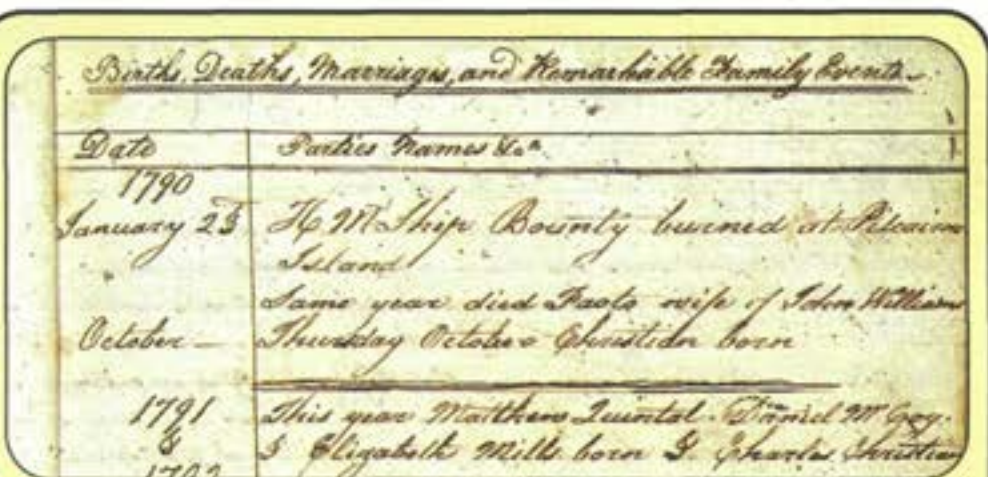 Births, Deaths, Marriages, and Remarkable Family Events
Date Parties Names &c
1790
January 23 H M Ship Bounty burned at Pitcairns
Island
Same year died Fasto wife of John Williams
October — Thursday October Christian born
1791 This year Matthew Quintal Daniel McCoy
& & Elizabeth Mills born & Charles Christian
1792